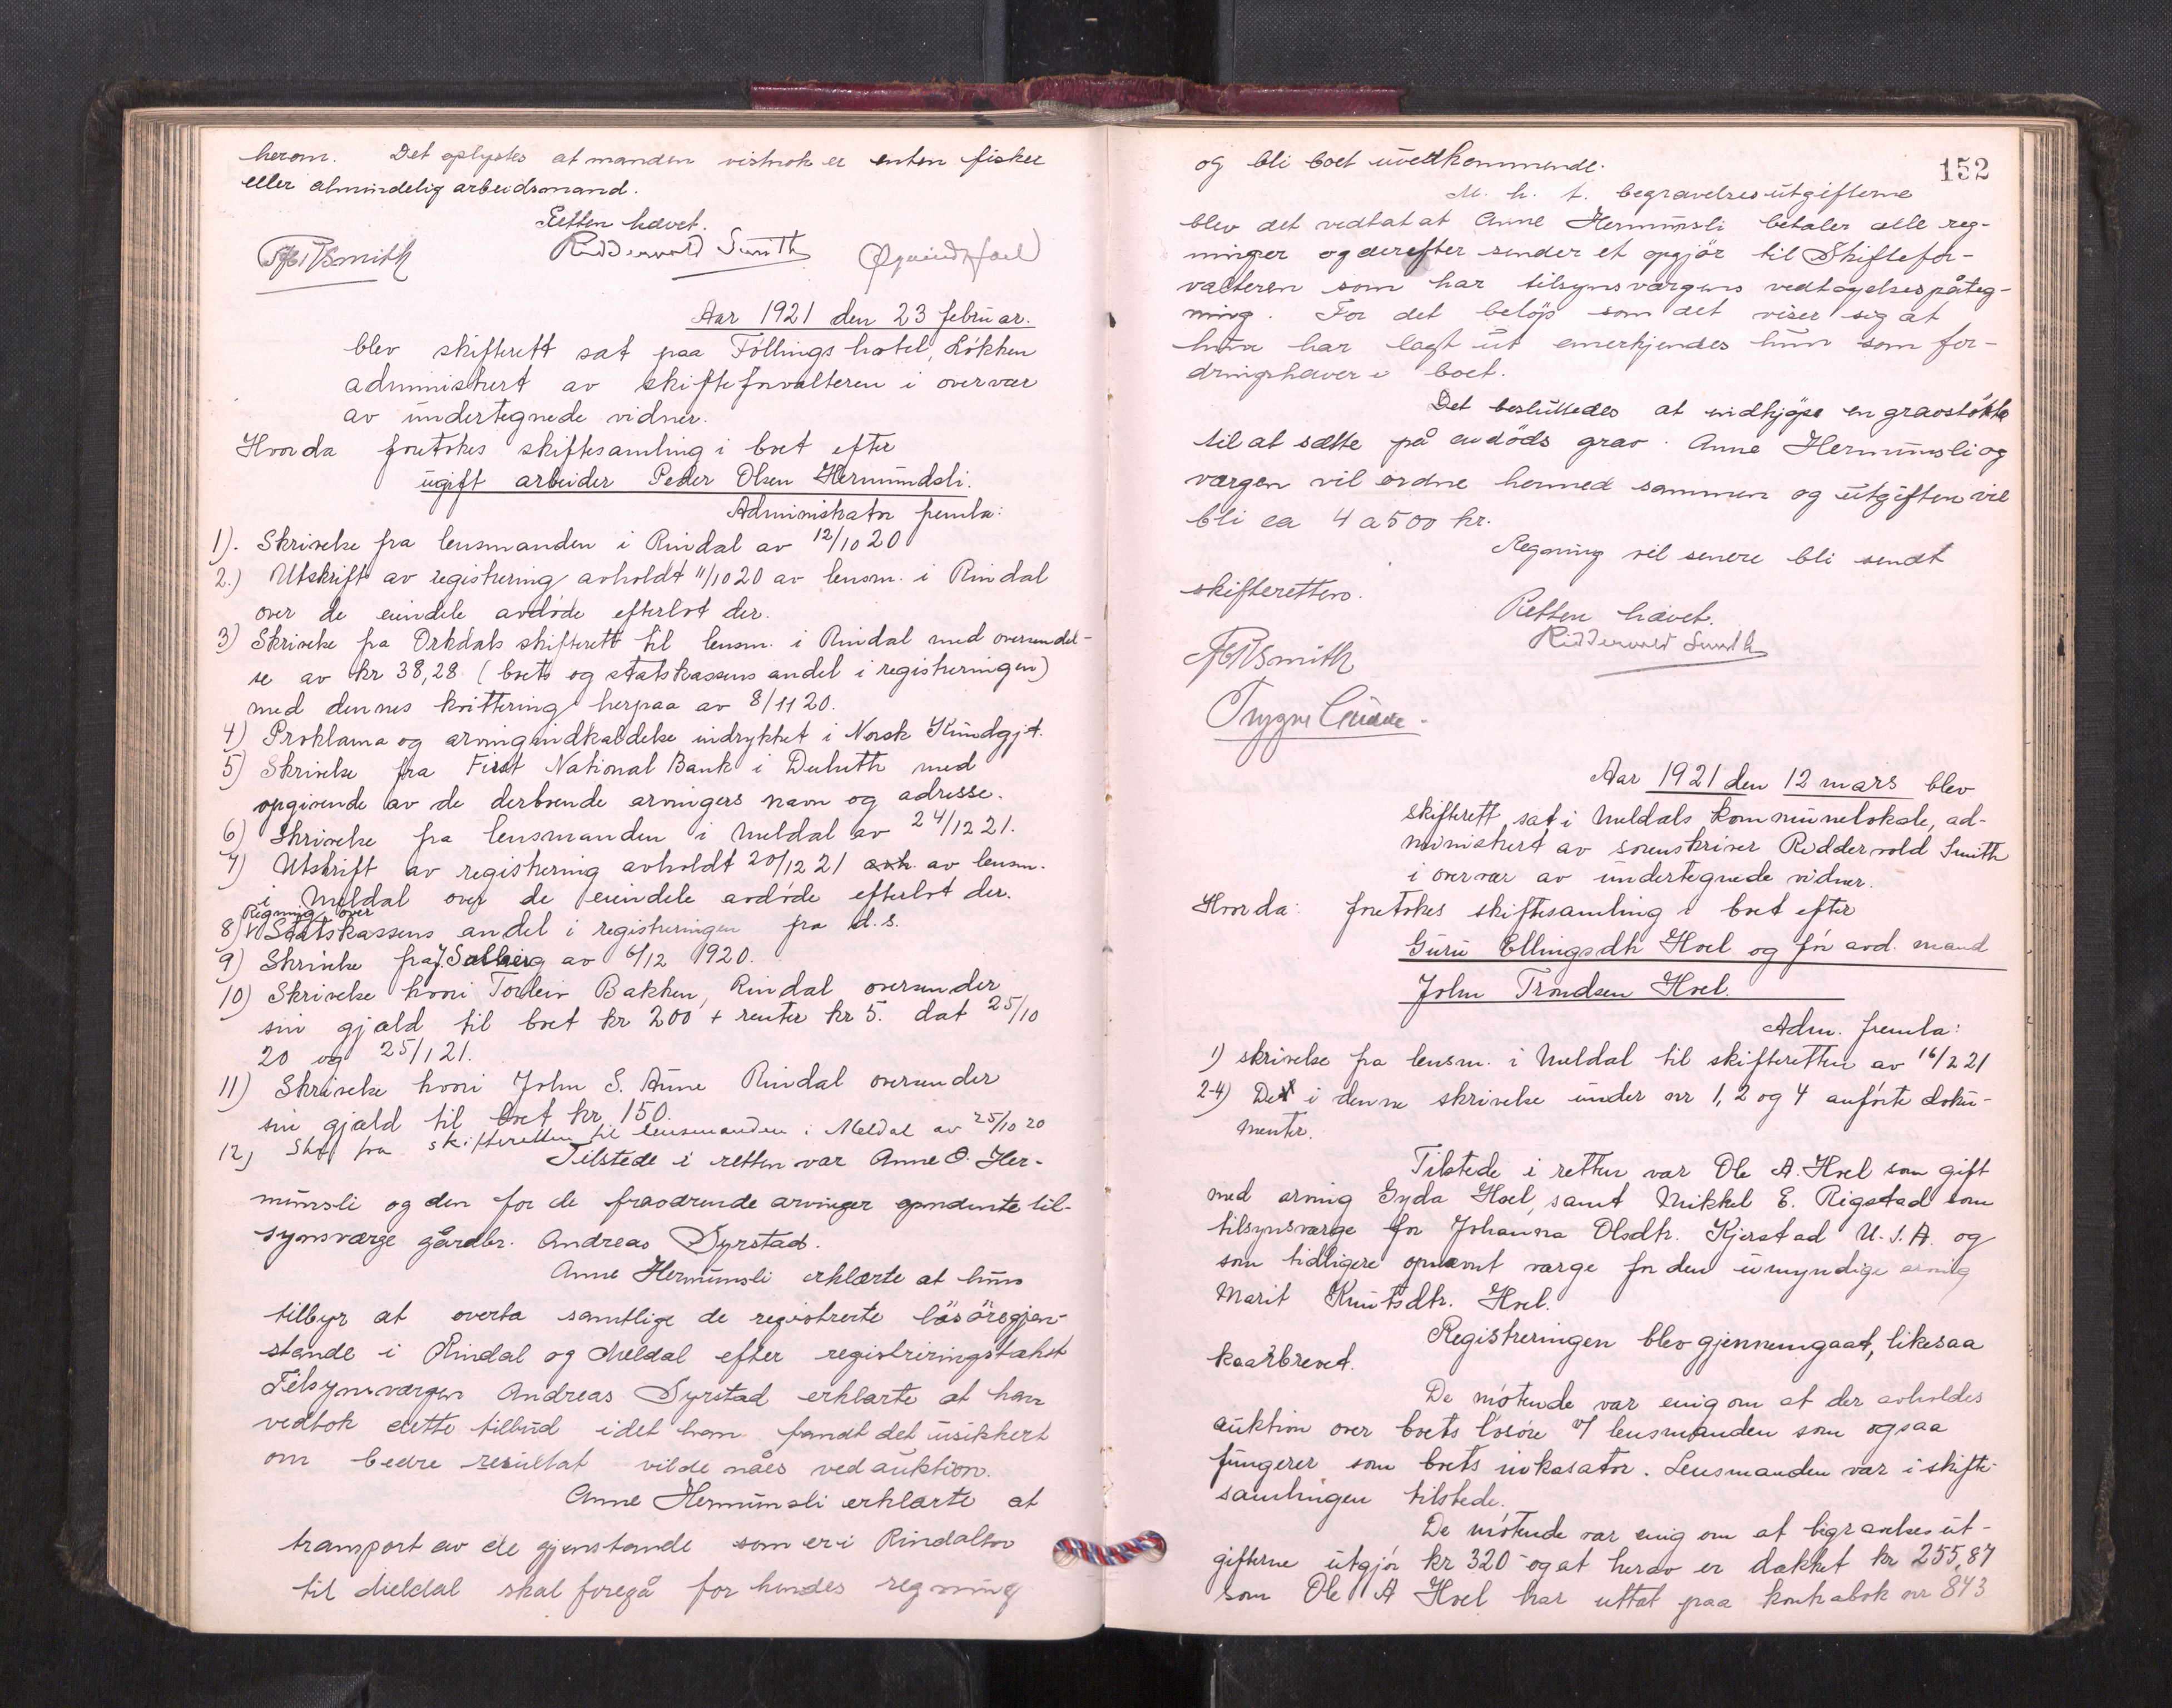 herom. Det oplystes at manden vistnok er enten fisker
eller almindelig arbeidsmand.
Retten hævet.
Ridderwold Smith
Aar 1921 den 23 februar.
blev skifterett sat paa Föllings hotel, Lökken
administrert av skifteforvalteren i overvær
av undertegnede vidner.
Hvorda foretokes skiftesamling i boet efter
ugift arbeider Peder Olsen Hermundsli.
Administrator fremla:
1). Skrivelse fra lensmanden i Rindal av 12/10 20
2.) Utskrift av registrering avholdt 11/10 20 av lensm. i Rindal
over de eiendele avdöde efterlot der.
3) Skrivelse fra Orkdals skifterett til lensm. i Rindal med oversendel-
se av kr 38,28 (boets og statskassens andel i registreringen)
med dennes kvittering herpaa av 8/11 20.
4) Proklama og arvingindkaldelse indrykket i Norsk Kundgjt.
5) Skrivelse fra First National Bank i Duluth med
opgivende av de derboende arvingers navn og adresse.
6) Skrivelse fra lensmanden i Meldal av 24/12 21.
7) Utskrift av registrering avholdt 20/12 21 av lensm.
i Meldal over de eiendele avdöde efterlot der.
Regning over
8) Statskassens andel i registreringen fra d.s.
9) Skrivelse fra J. Solberg av 6/12 1920.
10) Skrivelse hvori Torleiv Bakken, Rindal oversender
sin gjæld til boet kr 200 + renter kr 5. dat 25/10
20 og 25/1 21.
11) Skrivelse hvori John S. Aune Rindal oversender
sin gjæld til boet kr 150.
12) Skr fra skifteretten til lensmanden i Meldal av 25/10 20
Tilstede i retten var Anne O. Her-
munsli og den for de fraværende arvinger opnævnte til-
synsværge gårdbr. Andreas Syrstad.
Anne Hermunsli erklærte at hun
tilbyr at overta samtlige de registrerte lösöregjen-
stande i Rindal og Meldal efter registreringstakst
Tilsynsværgen Andreas Syrstad erklærte at han
vedtok dette tilbud idet han fandt det usikkert
om bedre resultat vilde nåes ved auktion.
Anne Hermunsli erklærte at
transport av de gjenstande som er i Rindalen
til Meldal skal foregå for hendes regning
152
og bli boet uvedkommende.
M. h. t. begravelsesutgifterne
blev det vedtat at Anne Hermunsli betaler alle reg-
ninger og derefter sender et opgjör til Skiftefor-
valteren som har tilsynsværgens vedtagelsespåteg-
ning. For det belöp som det viser sig at
hun har lagt ut anerkjendes hun som for-
dringshaver i boet.
Det besluttedes at indkjöpe en gravstötte
til at sætte på avdöds grav. Anne Hermunsli og
værgen vil ordne hermed sammen og utgiften vil
bli ca 4 a 500 kr.
Regning vil senere bli sendt
skifteretten.
Retten hævet.
Ridderwold Smith
Aar 1921 den 12 mars blev
skifterett sat i Meldals kommunelokale, ad-
ministrert av sorenskriver Ridderwold Smith
i overvær av undertegnede vidner.
Hvorda: foretokes skiftesamling i boet efter
Guru Ellingsdtr Hoel og för avd. mand
John Trondsen Hoel.
Adm. fremla:
1) skrivelse fra lensm. i Meldal til skifteretten av 16/2 21
2-4) De i denne skrivelse under nr 1, 2 og 4 anförte doku-
menter.
Tilstede i retten var Ole A. Hoel som gift
med arving Gyda Hoel, samt Mikkel E. Rigstad som
tilsynsværge for Johanna Olsdtr. Kjerstad U.S.A. og
som tidligere opnævnt værge for den umyndige arving
Marit Knutsdtr. Hoel.
Registreringen blev gjennemgaat, likesaa
kaarbrevet.
De mötende var enig om at der avholdes
auktion over boets lösöre v/ lensmanden som ogsaa
fungerer som boets inkasator. Lensmanden var i skifte-
samlingen tilstede.
De mötende var enig om at begravelsesut-
gifterne utgjör kr 320 - og at herav er dækket kr 255,87
som Ole A Hoel har uttat paa kontrabok nr 843